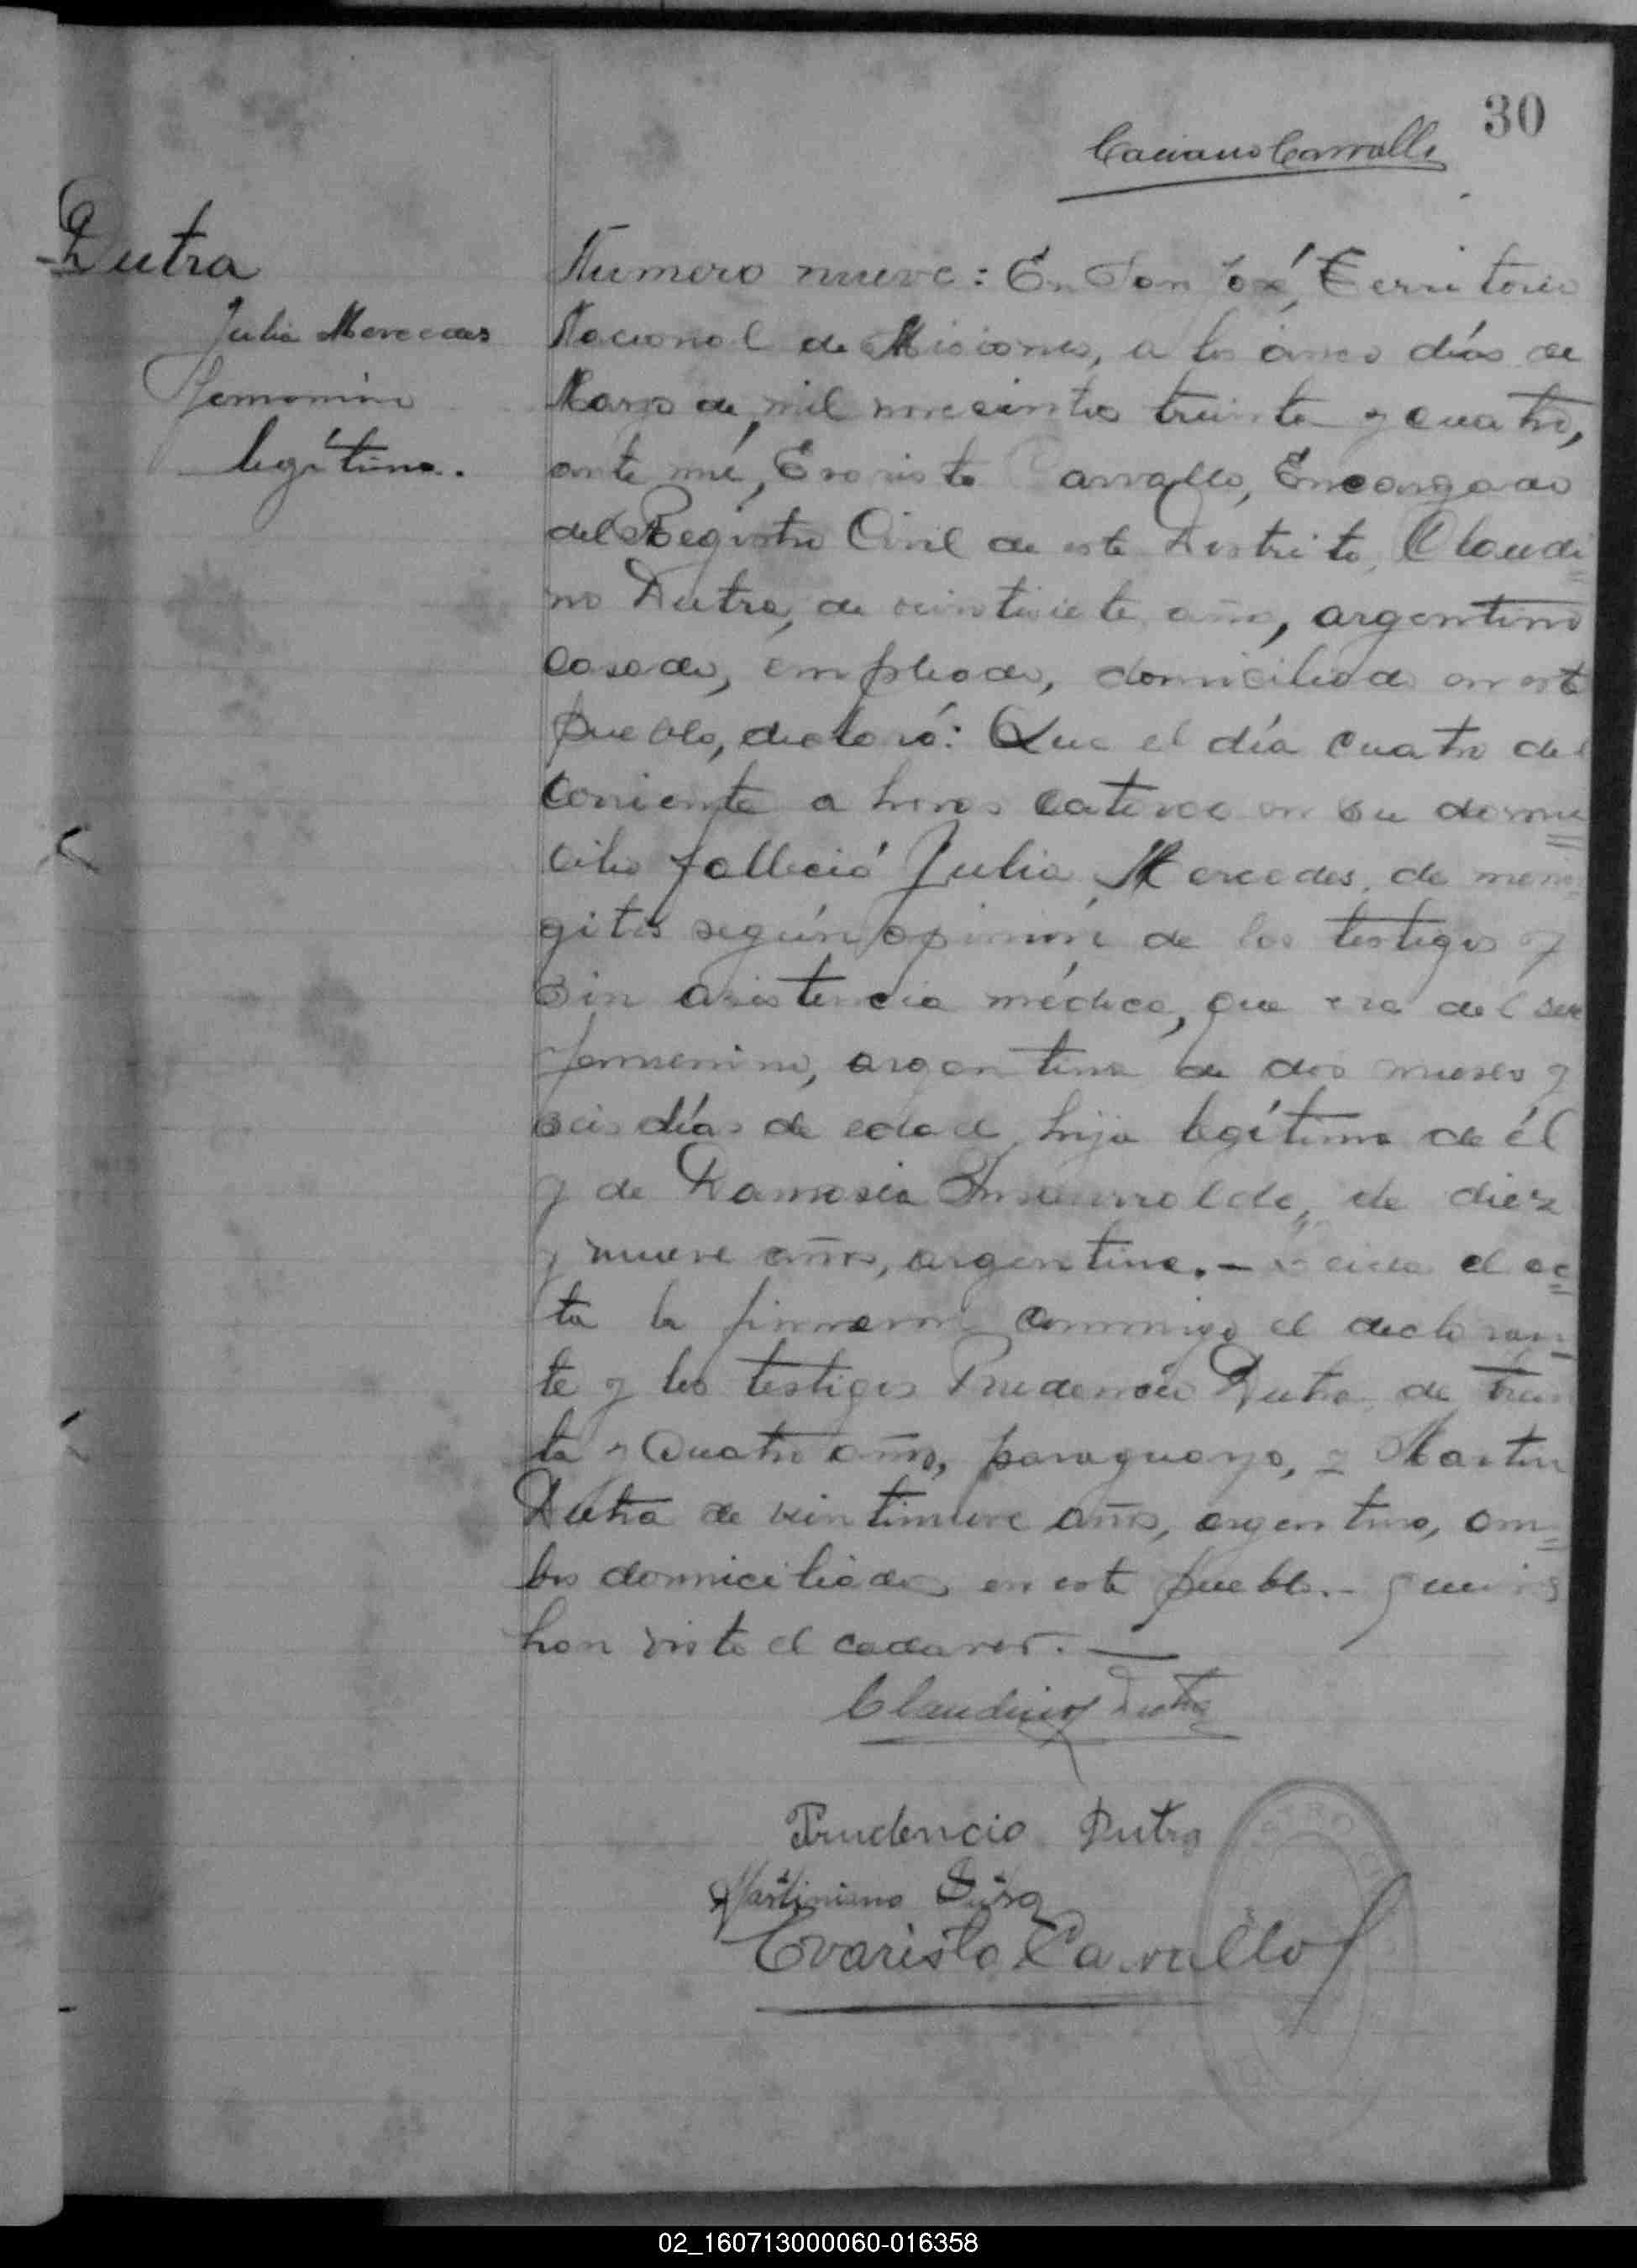 30
Caciano Carvallo
Dutra
Julia Mercedes
femenino
legítima.
Numero nueve: En San José, Territorio
Nacional de Misiones, a los cinco días de
Marzo de mil novecientos treinta y cuatro,
ante mí, Evaristo Carvallo, Encargado
del Registro Civil de este Distrito, Claudi
no Dutra, de veintisiete años, argentino
casado, empleado, domiciliado en este
pueblo, declaró: Que el día cuatro del
corriente a horas catorce en su domi
cilio falleció Julia Mercedes, de menin
gitis según opinión de los testigos y
sin asistencia médica, que era del sexo
femenino, argentina de dos meses y
seis días de edad, hija legítima de él
y de Damasia Insaurralde, de diez
y nueve años, argentina.- Leída el ac
ta la firmaron conmigo el declaran
te y los testigos Prudencio Dutra, de trein
ta y cuatro años, paraguayo, y Martin
Dutra de veintinueve años, argentino, am
bos domiciliados en este pueblo.- quienes
han visto el cadaver.-
Claudino Dutra
Prudencio Dutra
Martiniano Dutra
Evaristo Carvallo
02_160713000060-016358